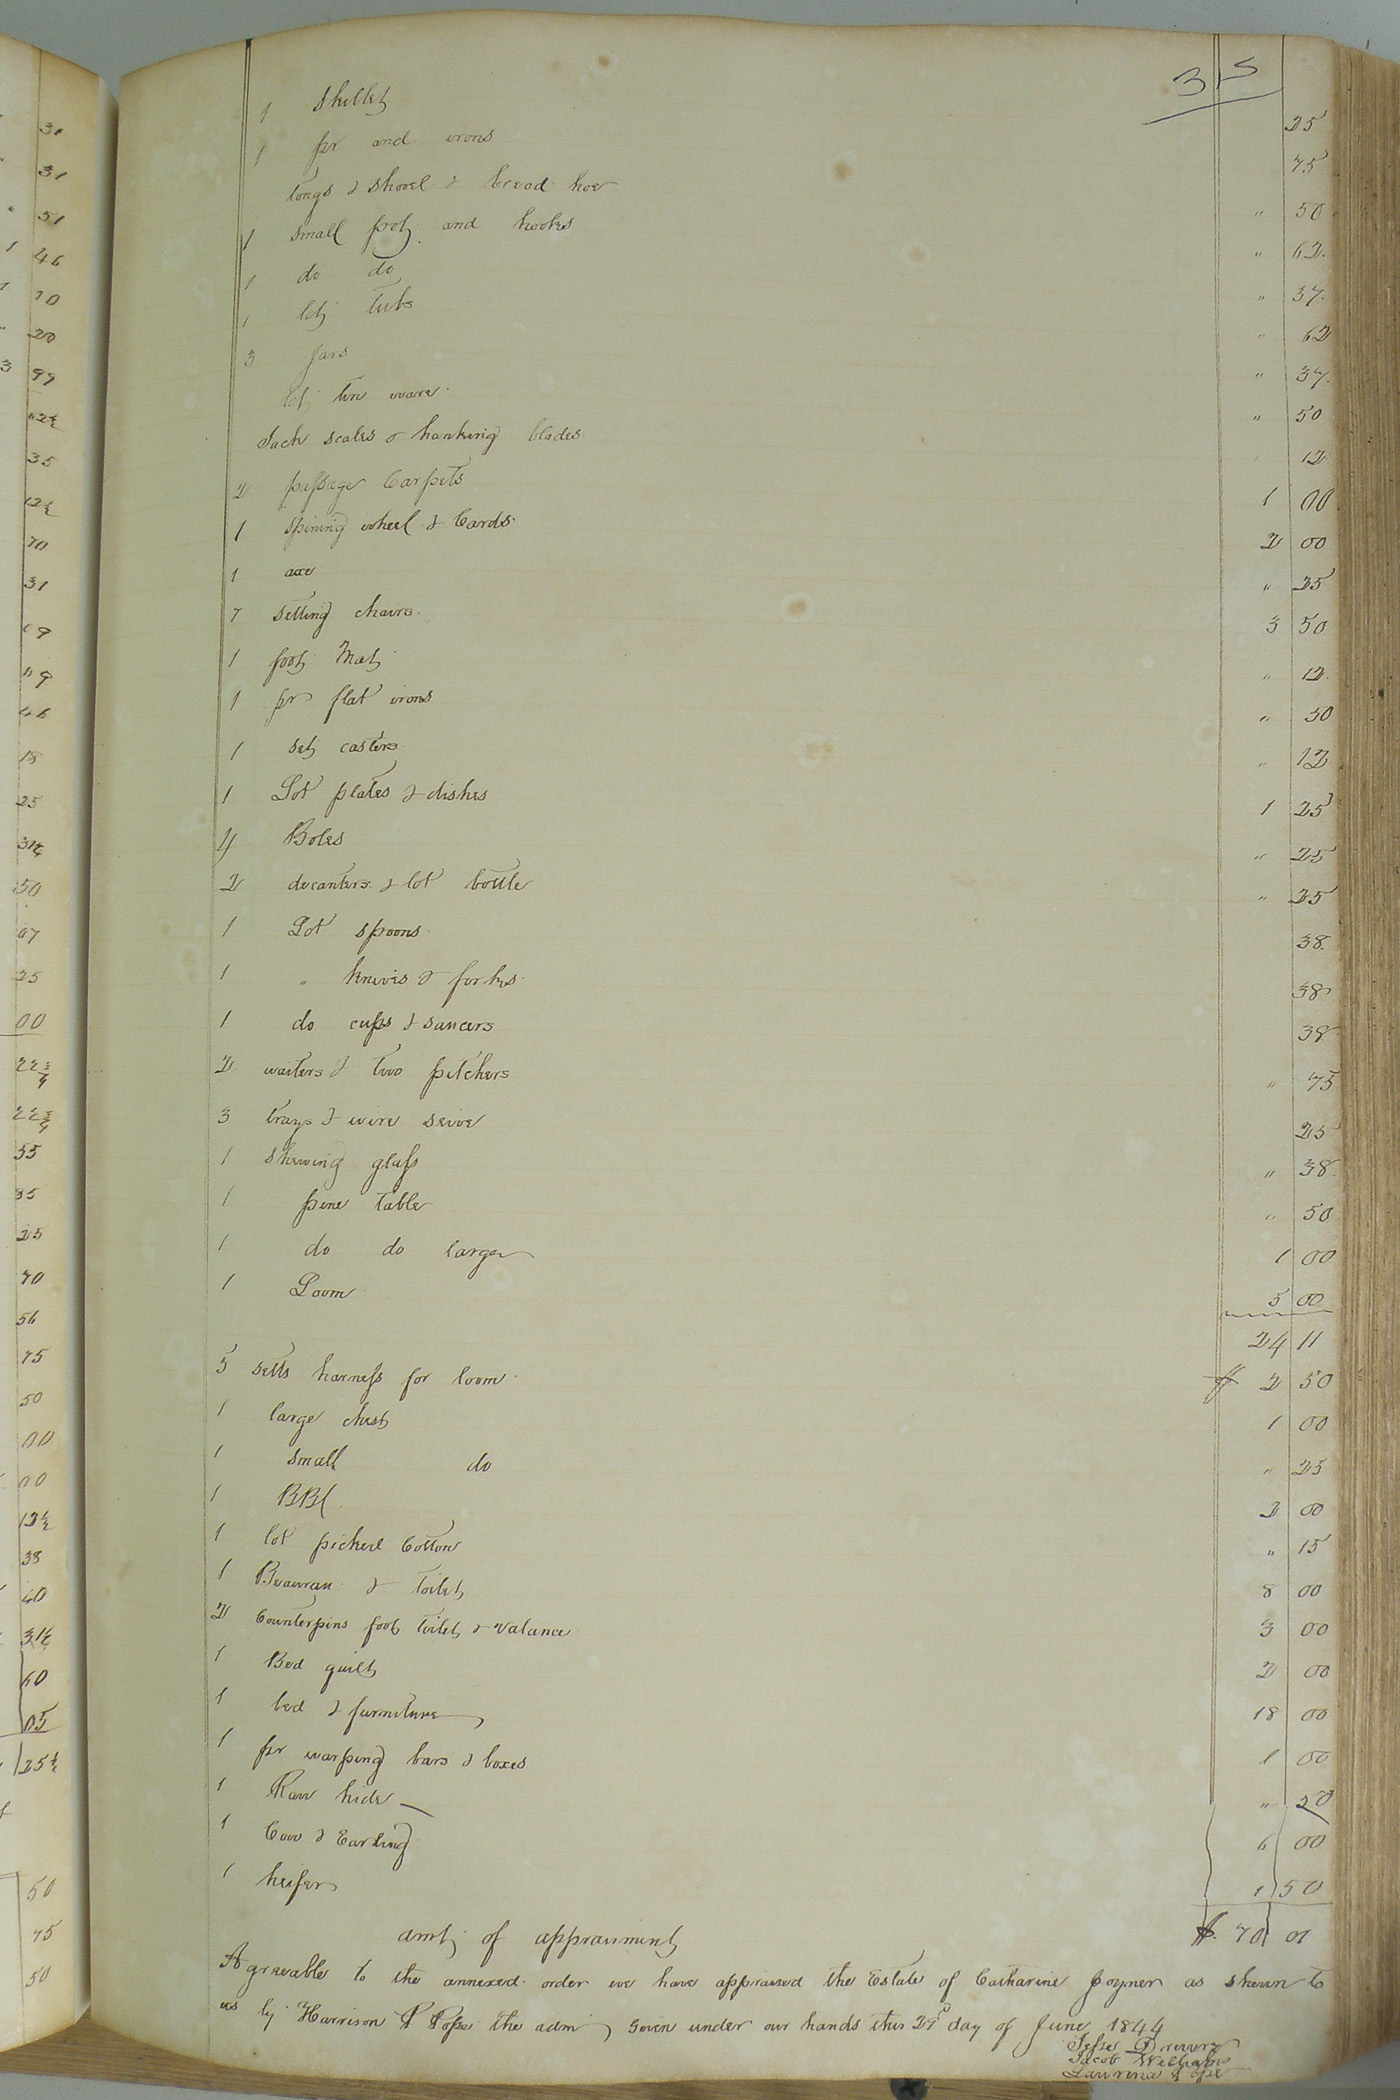 315
1 Skillet 25
1 pr and irons 75
tongs & shovel & bread hoe " 50
1 small pot and hooks " 62
1 do do " 37
1 lot tubs " 62
3 Jars " 37
lot tin ware " 50
Sack scales & hanking blades 12
2 passage Carpets 1 00
1 spining wheel & Cards 2 00
1 axe " 25
7 setting chairs 3 50
1 foot Mat " 12
1 pr flat irons " 50
1 set casters " 12
1 Lot plates & dishes 1 25
4 Boles " 25
2 decanters & lot bottle " 25
1 Lot spoons 38
1 " knives & forks 38
1 do cups & saucers 38
2 waiters & two pitchers " 75
3 trays & wire seive 25
1 shewing glass " 38
1 pine table " 50
1 do do larger 1 00
1 Loom 5 00
24 11
5 setts harness for loom $ 2 50
1 large chest 1 00
1 small do " 25
1 BBl 2 00
1 lot picked Cotton " 15
1 Beaurau & toilet 8 00
2 Counterpins foot toilet & valance 3 00
1 Bed quilt 2 00
1 bed & furniture 18 00
1 pr warping bars & boxes 1 00
1 Raw hide " 20
1 Cow & Earling 6 00
1 heifer 1 50
amt of appraisment $ 70 01
Agreeable to the annexed order we have appraised the Estate of Catharine Joyner as shewn to
us by Harrison Pope the adm, Given under our hands this 27th day of June 1844
Jesse Drewery
Jacob Williams
Lawrence Pope